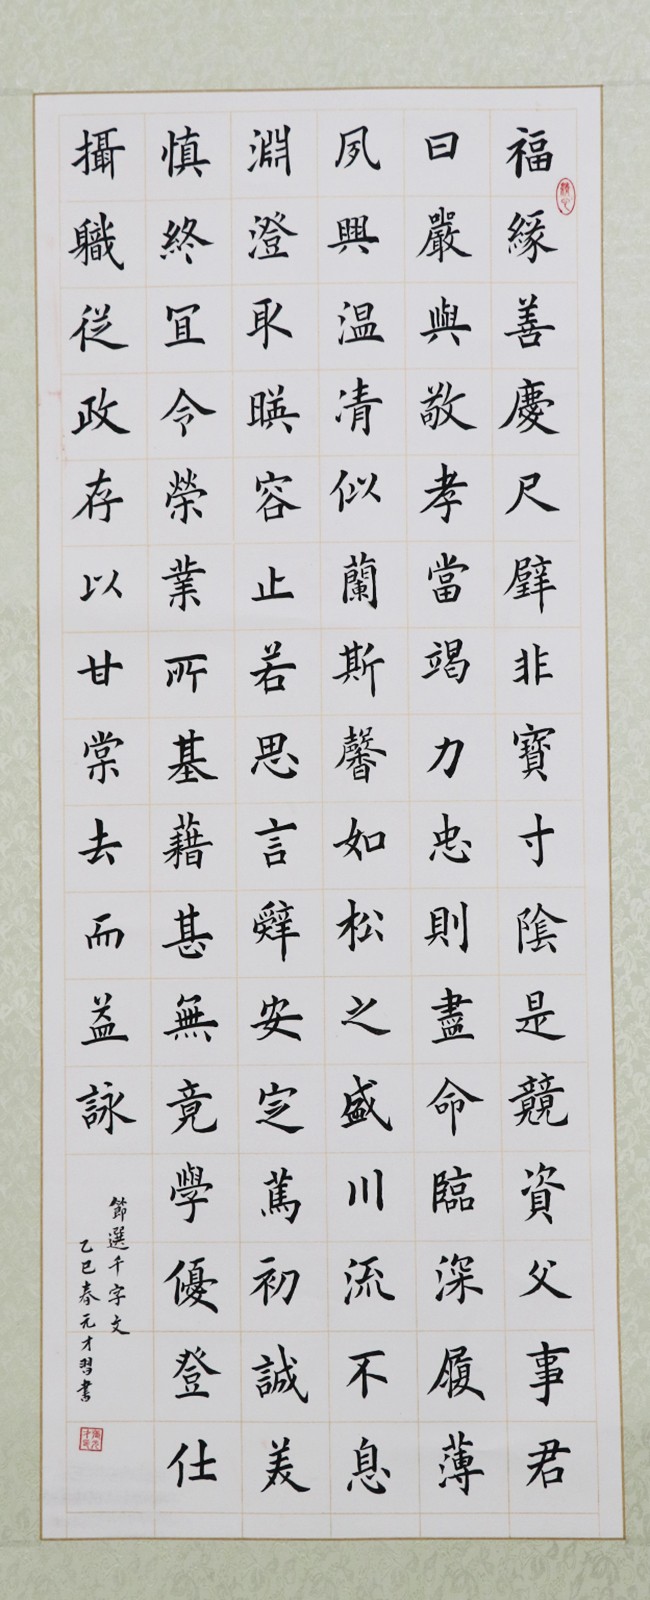 福緣善慶尺璧非寶寸陰是競資父事君
曰嚴與敬孝當竭力忠則盡命臨深履薄
夙興温凊似蘭斯馨如松之盛川流不息
淵澄取暎容止若思言辤安定篤初誠美
慎終宜令榮業所基藉甚無竟學優登仕
攝職従政存以甘棠去而益詠
節選千字文
乙巳春元才習書